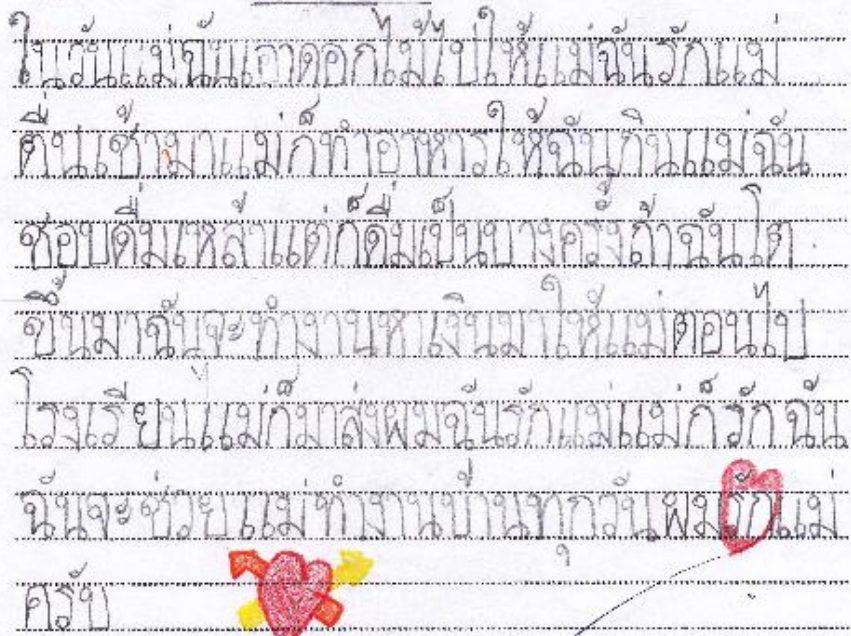 ในวันแม่ฉันเอาดอกไม้ไปให้แม่ฉันรักแม่
ตื่นเช้ามาแม่ก็ทำอาหารให้ฉันกินแม่ฉัน
ชอบดื่มเหล้าแต่ก็ดื่มเป็นบางครั้งถ้าฉันโต
ขึ้นมาฉันจะทำงานหาเงินมาให้แม่ตอนไป
โรงเรียนแม่ก็มาส่งผมฉันรักแม่แม่ก็รักฉัน
ฉันจะช่วยแม่ทำงานบ้านทุกวันผมรักแม่
ครับ